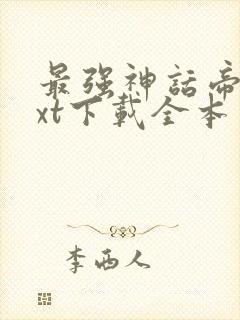 最强神話帝
xt下載全本
李西人